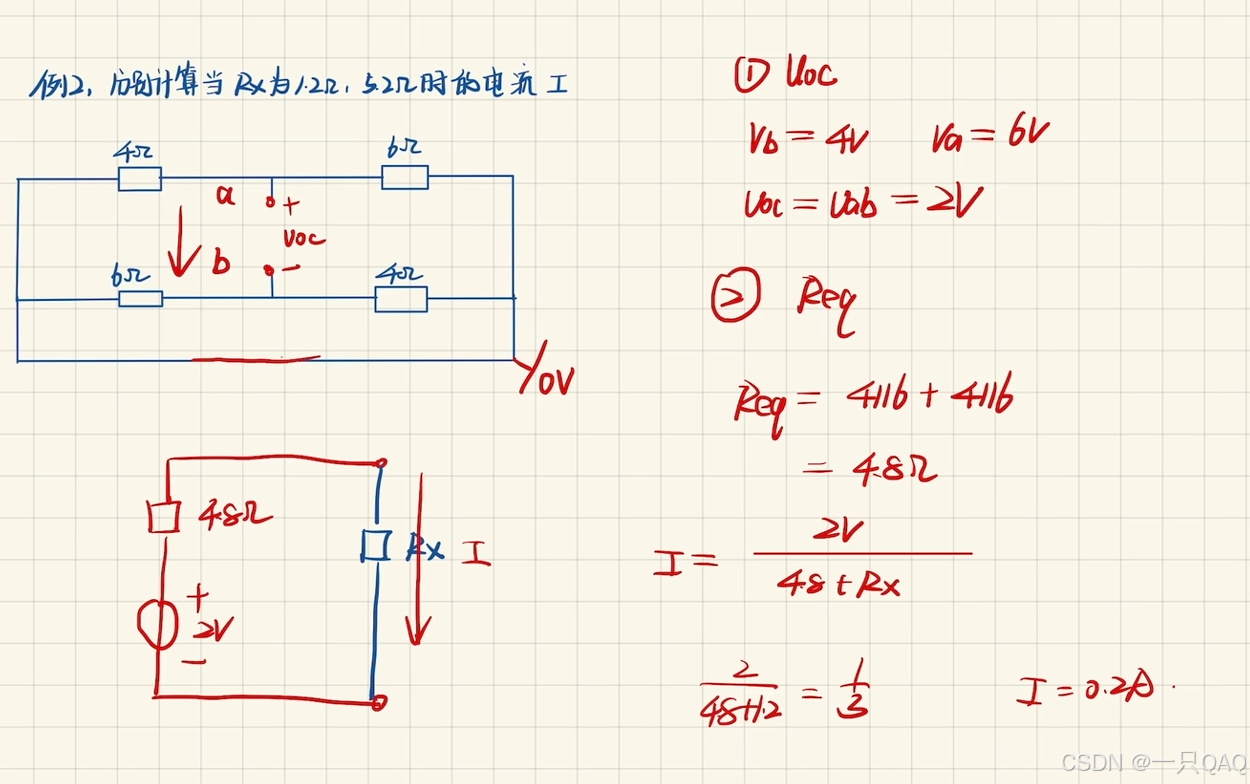 例2，分别计算当 Rx为1.2Ω，5.2Ω时的电流 I
4Ω
6Ω
a
+
Uoc
b
-
6Ω
4Ω
0V
4.8Ω
Rx I
+
2V
-
① Uoc
Vb = 4V Va = 6V
Uoc = Uab = 2V
② Req
Req = 4116 + 4116
= 4.8Ω
I = 2V
4.8 + Rx
2
4.8+1.2
= 1
3
I = 0.2A.
CSDN @一只QAQ